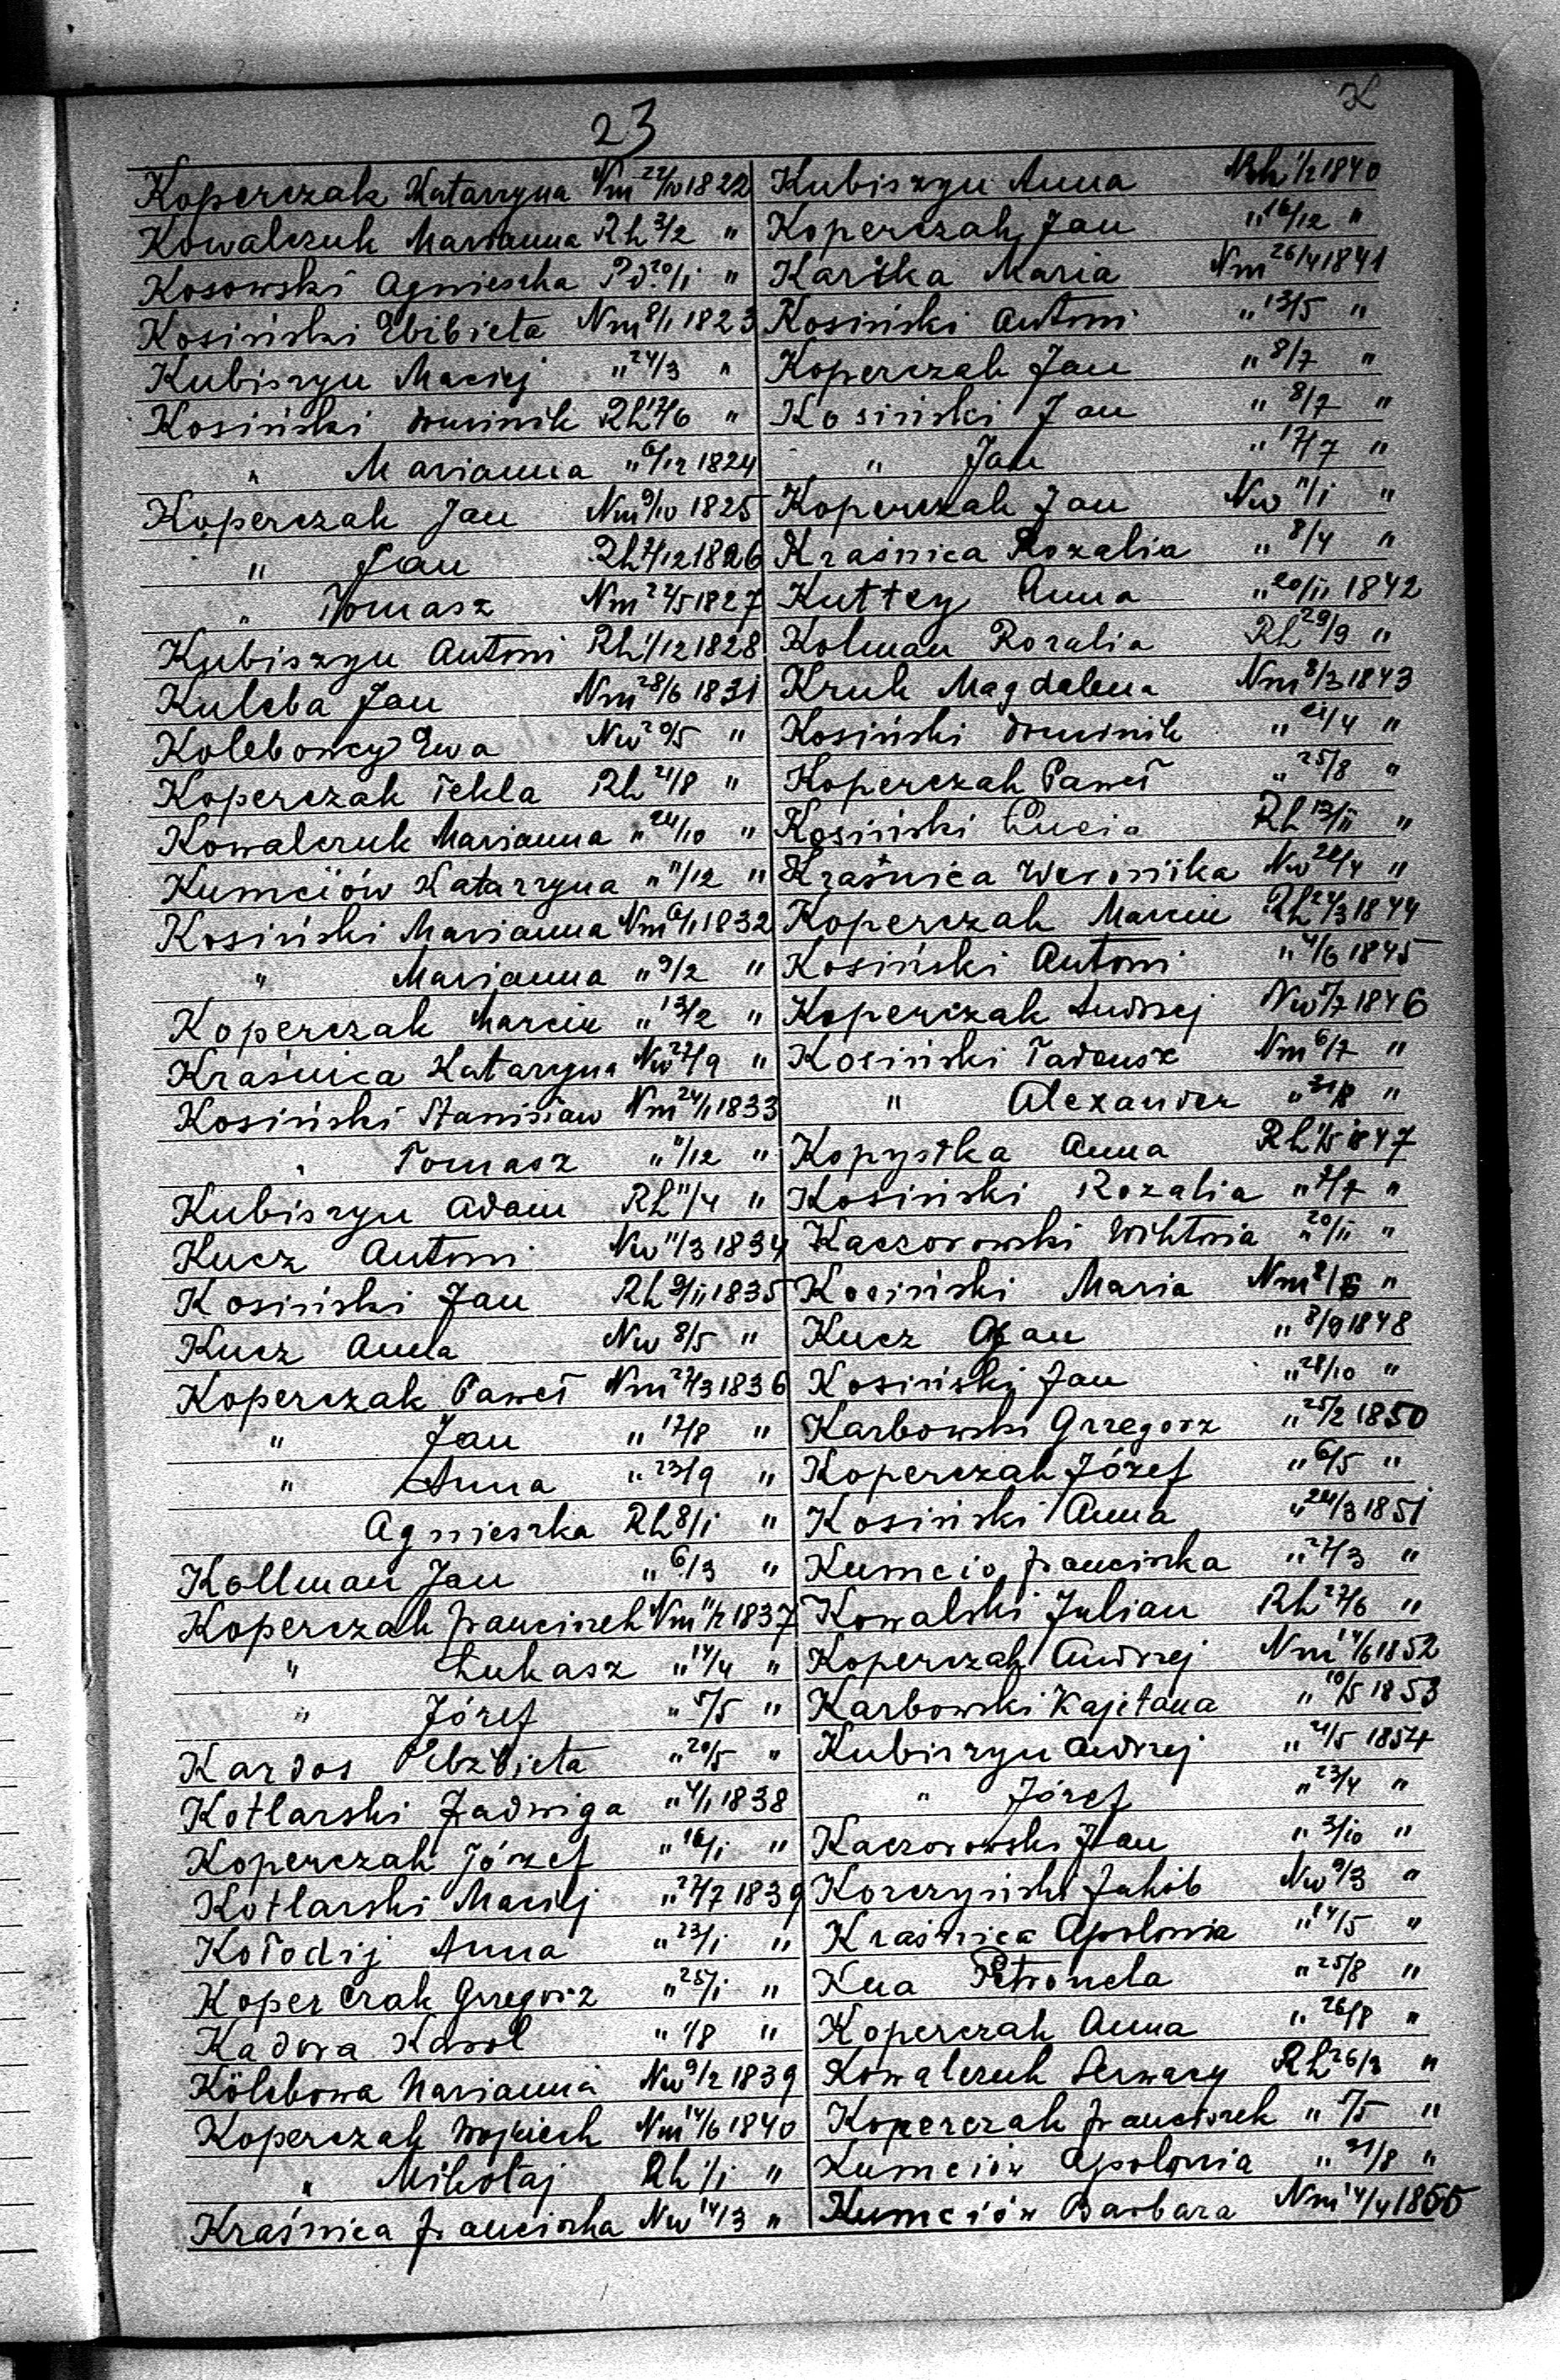 23
K
Koperczak Katarzyna Nm 22/10 1822
Kowalczuk Marianna Rh 3/2 "
Kosowski Agnieszka Pd 20/1 "
Kosiński Elżbieta Nm 8/1 1823
Kubiszyn Maciej " 24/3 "
Kosiński Dominik Rh 17/6 "
" Marianna " 6/12 1824
Koperczak Jan Nm 9/10 1825
" Jan Rh 7/12 1826
" Tomasz Nm 22/5 1827
Kubiszyn Antoni Rh 1/12 1828
Kuleba Jan Nm 28/6 1831
Kolebowcy Ewa Nw 20/5 "
Koperczak Tekla Rh 21/8 "
Kowalczuk Marianna " 24/10 "
Kumciów Katarzyna " 11/12 "
Kosiński Marianna Nm 6/1 1832
" Marianna " 9/2 "
Koperczak Marcin " 13/2 "
Kraśnica Katarzyna Nw 27/9 "
Kosiński Stanisław Nm 24/1 1833
" Tomasz " 11/12 "
Kubiszyn Adam Rh 11/4 "
Kucz Antoni Nw 11/3 1834
Kosiński Jan Rh 9/11 1835
Kucz Anna Nw 8/5 "
Koperczak Paweł Nm 27/3 1836
" Jan " 17/8 "
" Anna " 23/9 "
Agnieszka Rh 8/1 "
Kollman Jan " 6/3 "
Koperczak Franciszek Nm 11/2 1837
" Łukasz " 14/4 "
" Józef " 5/5 "
Kardos Elżbieta " 20/5 "
Kotlarski Jadwiga " 4/1 1838
Koperczak Józef " 16/1 "
Kotlarski Maciej " 27/7 1839
Kołodij Anna " 23/1 "
Koperczak Grzegorz " 25/1 "
Kadora Karol " 1/8 "
Kölebowa Marianna Nw 9/2 1839
Koperczak Wojciech Nm 14/6 1840
" Mikołaj Rh 1/1 "
Kraśnica Franciszka Nw 14/3 "
Kubiszyn Anna Rh 1/2 1840
Koperczak Jan " 16/12 "
Karika Maria Nm 26/4 1841
Kosiński Antoni " 13/5 "
Koperczak Jan " 8/7 "
Kosiński Jan " 8/7 "
" Jan " 17/7 "
Koperczak Jan Nw 11/1 "
Kraśnica Rozalia " 8/4 "
Kuttey Anna " 20/11 1842
Kolman Rozalia Rh 29/9 "
Kruk Magdalena Nm 8/3 1843
Kosiński Dominik " 21/4 "
Koperczak Paweł " 25/8 "
Kosiński Łucia Rh 13/11 "
Kraśnica Weronika Nw 22/4 "
Koperczak Marcin Rh 27/3 1844
Kosiński Antoni " 4/6 1845
Koperczak Andrzej Nw 5/7 1846
Kosiński Tadeusz Nm 6/7 "
" Alexander " 31/8 "
Kopystka Anna Rh 1/5 1847
Kosiński Rozalia " 2/7 "
Kaczorowski Wiktoria " 20/11 "
Kosiński Maria Nm 8/6 "
Kucz Jan " 8/9 1848
Kosiński Jan " 28/10 "
Karbowski Grzegorz " 25/2 1850
Koperczak Józef " 6/5 "
Kosiński Anna " 24/3 1851
Kumcio Franciszka " 27/3 "
Kowalski Julian Rh 27/6 "
Koperczak Andrzej Nm 14/6 1852
Karbowski Kajetana " 10/5 1853
Kubiszyn Andrzej " 21/5 1854
" Józef " 23/4 "
Kaczorowski Jan " 3/10 "
Korczyński Jakób Nw 9/3 "
Kraśnica Apolonia " 14/5 "
Kua Petronela " 25/8 "
Koperczak Anna " 26/8 "
Kowalczuk Serwacy Rh 26/3 "
Koperczak Franciszek " 5/5 "
Kumciów Apolonia " 31/8 "
Kumciów Barbara Nm 14/4 1855